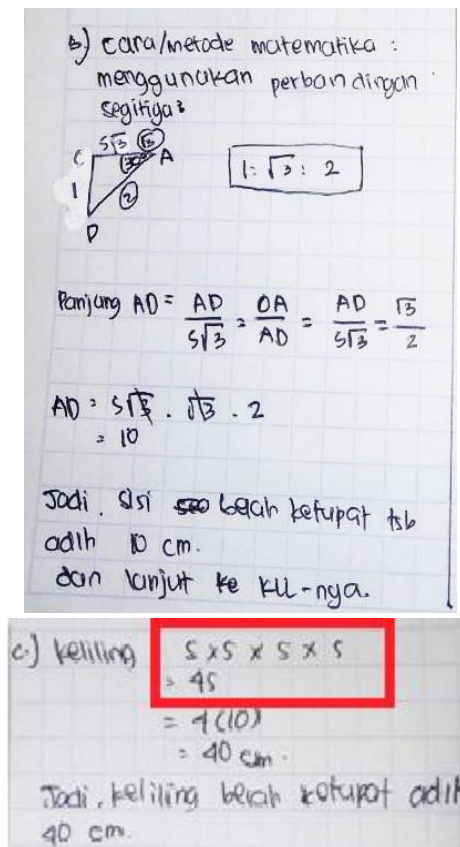 b.) cara/metode matematika :
menggunakan perbandingan
segitiga :
C 5√3 √3 A
30°
1 2
D
1 : √3 : 2
Panjang AD = AD/5√3 = OA/AD = AD/5√3 = √3/2
AD = 5√3 . √3 . 2
= 10
Jadi, sisi belah ketupat tsb
adlh 10 cm.
dan lanjut ke kll-nya.
c.) keliling S x S x S x S
= 4S
= 4(10)
= 40 cm.
Jadi, keliling belah ketupat adlh
40 cm.